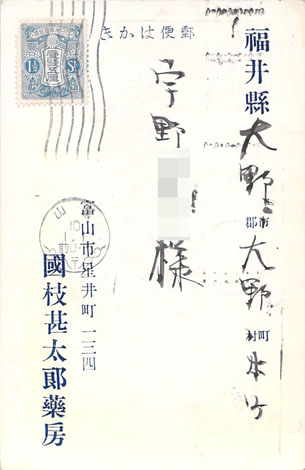 郵便はかき
1½ Sn
福井縣大野市郡大野町村本
宇野 様
富山市星井町一三四
國枝甚太郎藥房